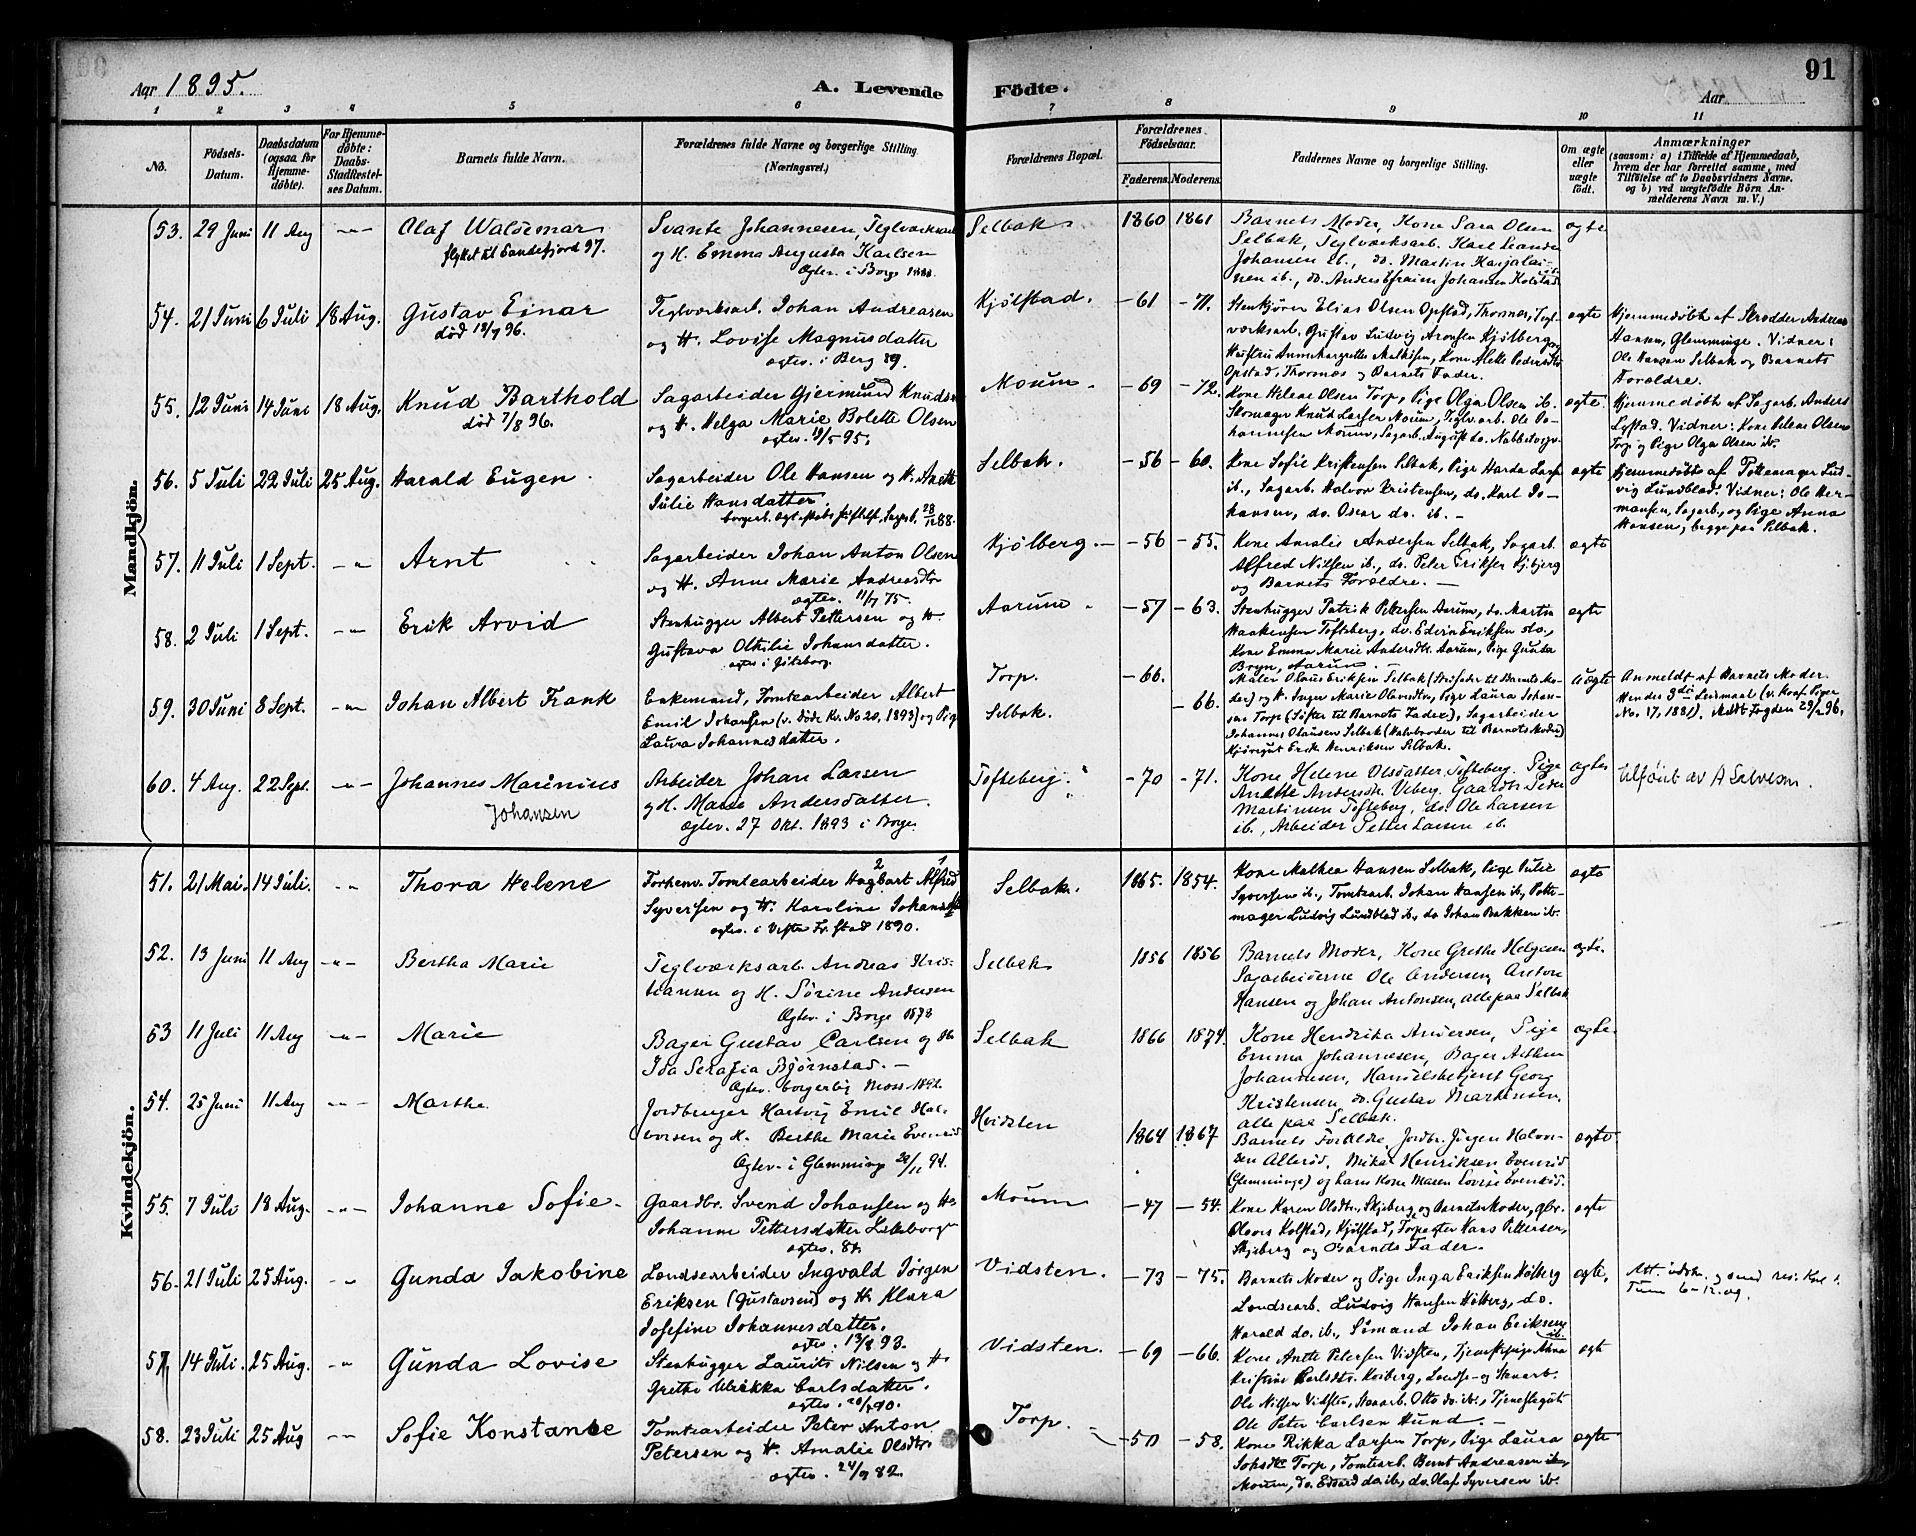 Aar 1895.
A. Levende
Födte.
91
Aar
1 2 3 4 5 6 7 8 9 10 11
No.
Födsels-
Datum.
Daabsdatum
(ogsaa for
Hjemme-
döbte).
For Hjemme-
döbte:
Daabs-
Stadfæstel-
ses Datum.
Barnets fulde Navn.
Forældrenes fulde Navne og borgerlige Stilling.
(Næringsvei.)
Forældrenes Bopæl.
Forældrenes
Födselsaar.
Faderens. Moderens.
Faddernes Navne og borgerlige Stilling.
Om ægte
eller
uægte
födt.
Anmærkninger
(saasom: a) i Tilfælde af Hjemmedaab,
hvem der har forrettet samme, med
Tilföielse af to Daabsvidners Navne.
og b) ved uægtefödte Börn An-
melderens Navn m. V.)
Mandkjön.
53. 29 Juni 11 Aug -"- Olaf Waldemar
flyttet til Sandefjord 97.
Svante Johannesen, Teglværksarb
og H. Emma Augusta Karlsen
Ægtev. i Borge 1888.
Selbak 1860 1861
Barnets Moder, Kone Sara Olsen
Selbak, Teglværksarb. Karl Leander
Johansen ib., do. Martin Karjalai-
nen ib., do. Anders Efraim Johansen Kolstad
ægte
54. 21 Juni 6 Juli 18 Aug. Gustav Einar
død 18/7 96.
Teglværksarb. Johan Andreasen
og H. Lovise Magnusdatter
ægtev. i Berg 89.
Kjølstad. -61 -71.
Stenkjører Elias Olsen Opstad, Thomas, Tegl-
værksarb. Gustav Ludvig Aronsen Kjølberg og
Hustru Anne Margrethe Mathisen, Kone Alette Pedersdtr
Opstad, Thomas og Barnets Fader.
ægte
Hjemmedøbt af Skrædder Andreas
Hansen, Glemminge. Vidner:
Ole Hansen Selbak og Barnets
Forældre.
55. 12 Juni 14 Juni 18 Aug. Knud Barthold
død 7/8 96.
Sagarbeider Gjermund Knudsen
og H. Helga Marie Bolette Olsen
ægtev. 19/5 95.
Moum. -69 -72.
Kone Helene Olsen Torp, Pige Olga Olsen ib.
Skomager Knud Larsen Moum, Teglv.arb. Ole Jo-
hannesen Moum, Sagarb. August do. Nabbetorp
ægte.
Hjemmedøbt af Sagarb. Anders
Lystad. Vidner: Kone Helene Olsen
Torp og Pige Olga Olsen ib.
56. 5 Juli 22 Juli 25 Aug. Harald Eugen
Sagarbeider Ole Hansen og H. Anette
Julie Hansdatter.
Selbak. -56 -60.
Kone Sofie Kristensen Selbak, Pige Harda Larsen
ib., Sagarb. Halvor Kristensen, do. Karl Jo-
hansen, do. Oscar do. ib. -
ægte
Hjemmedøbt af Pottemager Lud-
vig Lundblad. Vidner: Ole Her-
mansen, Sagarb., og Pige Anna
Hansen, begge paa Selbak.
57. 11 Juli 1 Sept. -"- Arnt
Sagarbeider Johan Anton Olsen
og H. Anne Marie Andreasdtr
ægtev. 11/7 75.
Kjølberg. -56 -55.
Kone Amalie Andersen Selbak, Sagarb.
Alfred Nilsen ib., do. Peter Eriksen
og Barnets Forældre. -
ægte
58. 2 Juli 1 Sept. -"- Erik Arvid
Stenhugger Albert Pettersen og H.
Gustava Othilie Johansdatter.
ægtev. i Gøteborg
Aarum -57 -63.
Stenhugger Patrik Pettersen Aarum, do. Martin
Haakensen Tofteberg, do. Edvin Eriksen do.,
Kone Emma Marie Andersdtr. Aarum, Pige Gunda
Bryn, Aarum. -
ægte
59. 30 Juni 8 Sept. -"- Johan Albert Frank
Enkemand, Tomtearbeider Albert
Emil Johansen (v. Døde Kv. No 20, 1893) og Pige
Laura Johannesdatter.
Torp. -66.
Selbak. -66.
Maler Olaus Eriksen Selbak (Stiffader til Barnets Mo-
der) og H. Inger Marie Olavesdtr, Pige Laura Johan-
sen Torp (Søster til Barnets Fader), Sagarbeider
Johannes Olausen Selbak (Halvbroder til Barnets Moder)
Kjøregut Erik Henriksen Selbak.
uægte
Anmeldt af Barnets Moder.
Hendes 3die Leiermaal (v. Konf. Piger
No. 17, 1881). Meldt Fogden 29/2 96.
60. 4 Aug. 22 Sept. -"- Johannes Marinius
Johansen
Arbeider Johan Larsen
og H. Marie Andersdatter.
Ægtev. 27 Okt. 1893 i Borge
Tofteberg -70 -71.
Kone Helene Olsdatter Tofteberg. Pige
Anette Andersdtr. Viberg. Gaardbr. Peder
Martinsen Tofteberg, do. Ole Larsen
ib., Arbeider Petter Larsen ib.
ægte
tilført av A Salvesen.
Kvindekjön.
51. 21 Mai. 14 Juli. -"- Thora Helene
2 1
Forhenv. Tomtearbeider Hagbart Alfred
Syversen og H. Karoline Johansdtr
ægtev. i Vestre Fr.stad 1890.
Selbak. 1865. 1854.
Kone Mathea Hansen Selbak, Pige Julie
Syversen ib., Tomtearb. Johan Hansen ib., Potte-
mager Ludvig Lundblad ib., do Johan Bakken ib.
ægte
52. 13 Juni 11 Aug -"- Bertha Marie
Teglværksarb. Andreas Kris-
tiansen og H. Sørine Andersen
Ægtev. i Borge 1878
Selbak 1856 1856
Barnets Moder, Kone Grethe Helgesen
Sagarbeiderne Ole Andersen, Anton
Hansen og Johan Antonsen, alle paa Selbak
ægte.
53 11 Juli 11 Aug -"- Marie
Bager Gustav Carlsen og H.
Ida Serafia Bjørnstad. -
Ægtev. borgerlig Moss 1892.
Selbak 1866 1874.
Kone Hendrika Andersen, Pige
Emma Johannesen, Bager Arthur
Johannesen, Handelsbetjent Georg
Kristensen, do. Gustav Martinsen,
alle paa Selbak.
ægte.
54. 25 Juni 11 Aug -"- Marthe
Jordbruger Hartvig Emil Hal-
vorsen og H. Berthe Marie Evensdtr
Ægtev. i Glemminge 29/11 94.
Hvidsten 1864 1867
Barnets Forældre, Jordbr. Jörgen Halvor-
sen Allerød, Mikal Henriksen Evenrød
(Glemminge) og hans Kone Maren Lovise Evenrød.
ægte
55. 7 Juli 18 Aug. -"- Johanne Sofie.
Gaardbr. Svend Johansen og H.
Johanne Pettersdatter Lilleborge
ægtev. 84.
Moum -47 -54.
Kone Karen Olsdtr, Skjeberg, og Barnets Moder, gbr.
Olaus Kolstad, Kjølstad, Forpagter Hans Pettersen,
Skjeberg og Barnets Fader.
ægte
56. 21 Juli 25 Aug. -"- Gunda Jakobine
Londsearbeider Ingvald Jørgen
Eriksen (Gustavsen) og H. Klara
Josefine Johannesdatter.
ægtev. 13/8 93.
Vidsten. -73 -75.
Barnets Moder og Pige Inga Eriksen Holberg
Londsearb. Ludvig Hansen Holberg, do.
Harald do. ib., Sømand Johan Eriksen
ib.
ægte.
Att. utstu. 
57 14 Juli. 25 Aug. -"- Gunda Lovise
Stenhugger Laurits Nilsen og H.
Grethe Ulrikka Carlsdatter.
Vidsten. -69 -66.
Kone Anette Petersen Vidsten, Tjenestepige Anna
Kristine Karlsdtr. Kviberg, Londse- og Stenarb.
Ole Nilsen Vidsten, Stenarb. Otto do. ib., Tjenestegut
Ole Peter Carlsen Hund. -
ægte
58. 23 Juli 25 Aug -"- Sofie Konstance
Tomtearbeider Peter Anton
Petersen og H. Amalie Olsdtr.
ægtev. 24/9 82.
Torp. -50 -58.
Kone Rikka Larsen Torp, Pige Laura
Johsdtr Torp, Tomtearb. Bernt Andreasen
Moum, do. Edvard do. ib., do. Olaf Syversen ib.
ægte